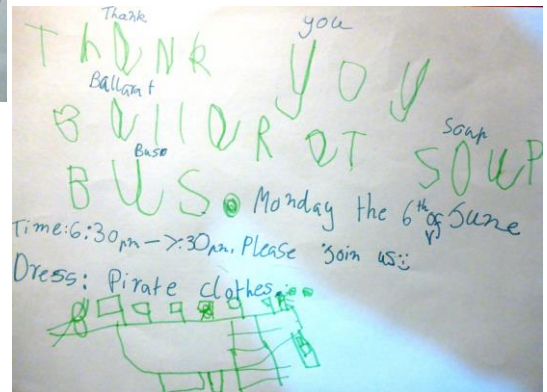 Thank you
Thank you
Ballarat
Ballarat Soup
Soup
Bus
BUS. Monday the 6th of June
Time: 6:30pm -> 7:30pm. Please join us
Dress: Pirate clothes